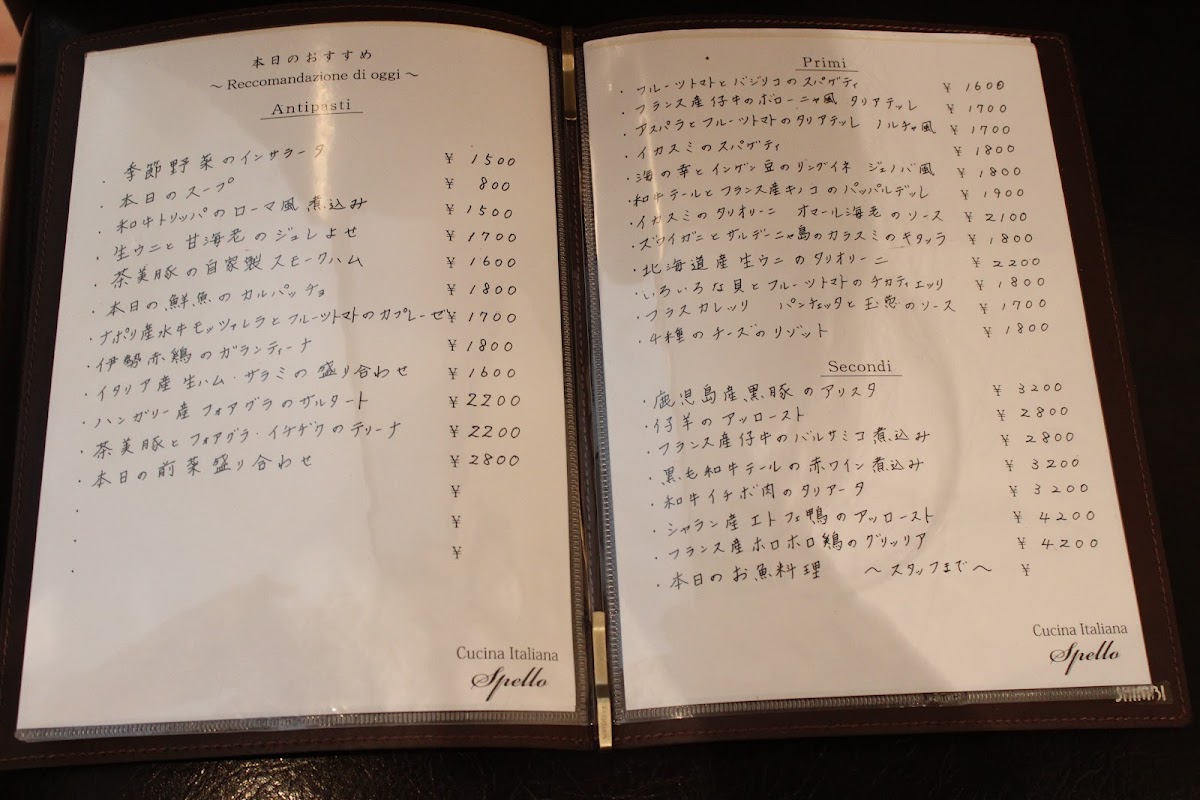 本日のおすすめ
～ Reccomandazione di oggi ～
Antipasti
・季節野菜のインサラータ ¥ 1500
・本日のスープ ¥ 800
・和牛トリッパのローマ風煮込み ¥ 1500
・生ウニと甘海老のジュレよせ ¥ 1700
・茶美豚の自家製スモークハム ¥ 1600
・本日の鮮魚のカルパッチョ ¥ 1800
・ナポリ産水牛モッツァレラとフルーツトマトのカプレーゼ ¥ 1700
・伊勢赤鶏のガランティーナ ¥ 1800
・イタリア産生ハム・サラミの盛り合わせ ¥ 1600
・ハンガリー産フォアグラのサルタート ¥ 2200
・茶美豚とフォアグラ・イチヂクのテリーナ ¥ 2200
・本日の前菜盛り合わせ ¥ 2800
¥
・ ¥
・ ¥
Cucina Italiana
Spello
Primi
・フルーツトマトとバジリコのスパゲティ ¥ 1600
・フランス産仔牛のボローニャ風 タリアテッレ ¥ 1700
・アスパラとフルーツトマトのタリアテッレ ノルチャ風 ¥ 1700
・イカスミのスパゲティ ¥ 1800
・海の幸とインゲン豆のリングイネ ジェノバ風 ¥ 1800
・和牛テールとフランス産キノコのパッパルデッレ ¥ 1900
・イカスミのタリオリーニ オマール海老のソース ¥ 2100
・ズワイガニとサルデーニャ島のカラスミのキタッラ ¥ 1800
・北海道産生ウニのタリオリーニ ¥ 2200
・いろいろな貝とフルーツトマトのチカティエッリ ¥ 1800
・フラスカレッリ パンチェッタと玉葱のソース ¥ 1700
・4種のチーズのリゾット ¥ 1800
Secondi
・鹿児島産黒豚のアリスタ ¥ 3200
・仔羊のアッロースト ¥ 2800
・フランス産仔牛のバルサミコ煮込み ¥ 2800
・黒毛和牛テールの赤ワイン煮込み ¥ 3200
・和牛イチボ肉のタリアータ ¥ 3200
・シャラン産エトフェ鴨のアッロースト ¥ 4200
・フランス産ホロホロ鶏のグリッリア ¥ 4200
・本日のお魚料理 ～スタッフまで～ ¥
Cucina Italiana
Spello
SHIMBI